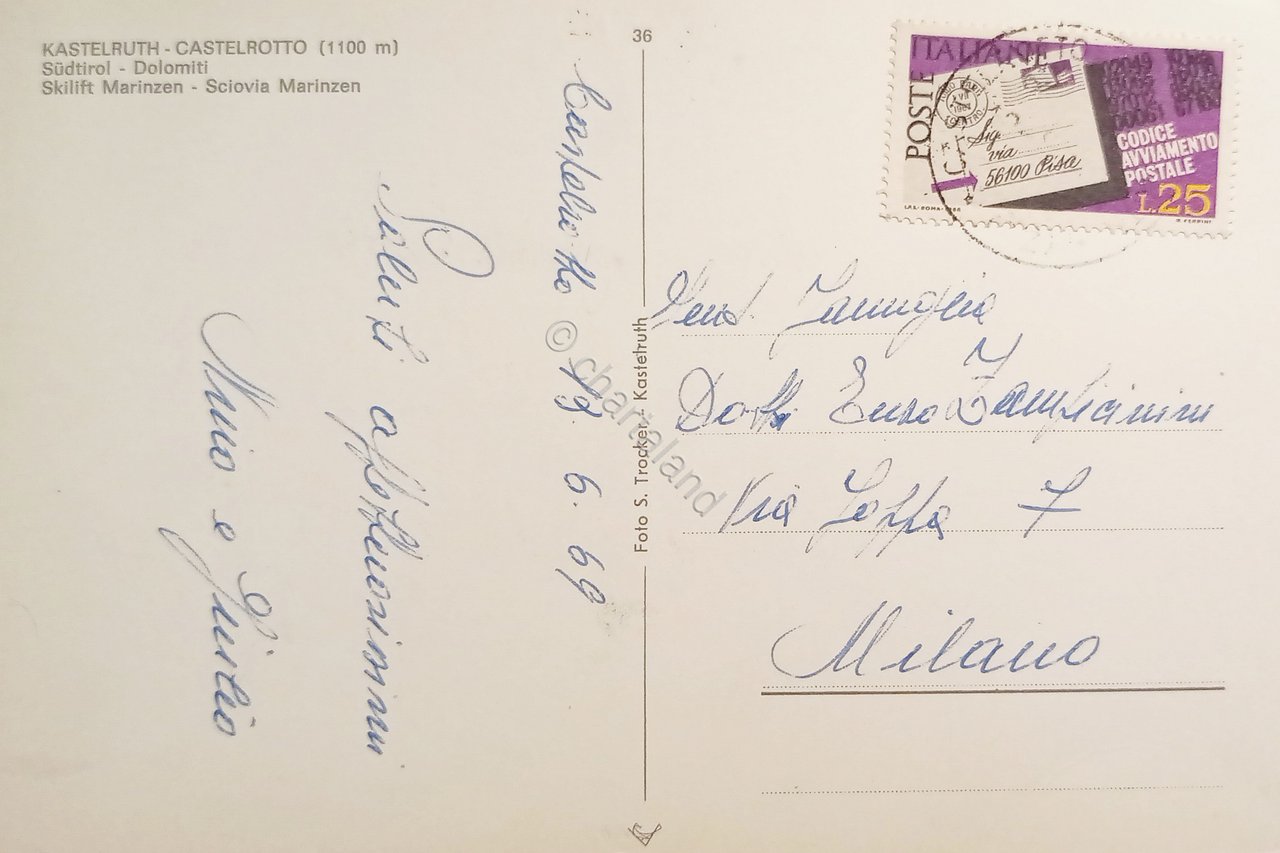 KASTELRUTH - CASTELROTTO (1100 m)
Südtirol - Dolomiti
Skilift Marinzen - Sciovia Marinzen
36
Castelrotto 6. 69
Saluti affettuosissimi
e Giulio
Foto S. Trocker - Kastelruth
© chartaland
POSTE ITALIANE
Sig.
via
56100 Pisa
CODICE
AVVIAMENTO
POSTALE
L.25
Famiglia
Dott.
Via 7
Milano